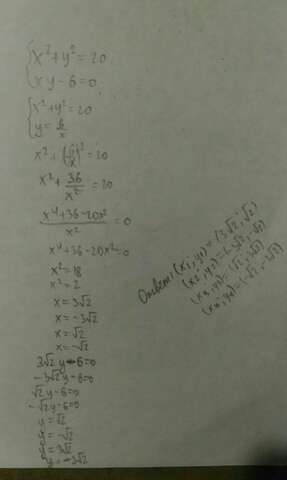 x²+y²=20
xy-6=0
x²+y²=20
y=6/x
x²+(6/x)²=20
x²+36/x²=20
(x⁴+36-20x²)/x²=0
x⁴+36-20x²=0
x²=18
x²=2
x=3√2
x=-3√2
x=√2
x=-√2
3√2y-6=0
-3√2y-6=0
√2y-6=0
-√2y-6=0
y=√2
y=-√2
y=3√2
y=-3√2
Ответ: (x₁,y₁)=(3√2,√2)
(x₂,y₂)=(-3√2,-√2)
(x₃,y₃)=(√2,3√2)
(x₄,y₄)=(-√2,-3√2)